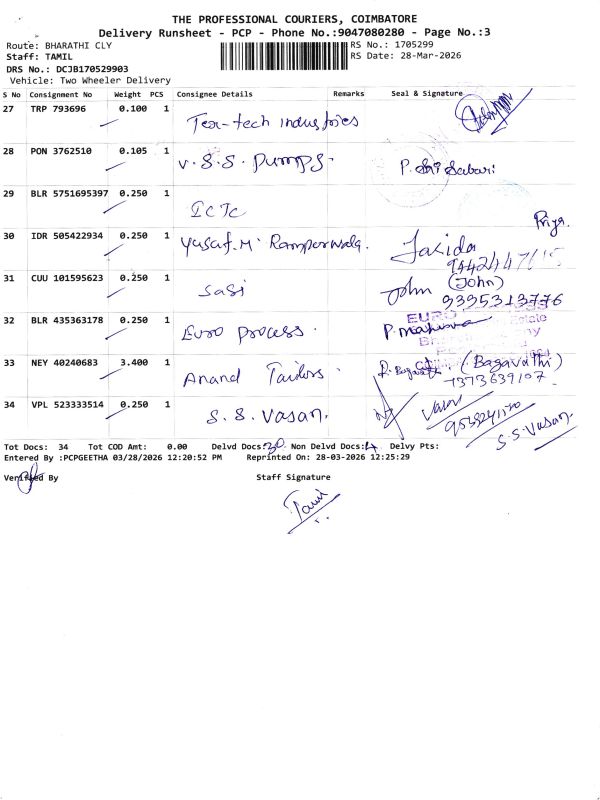 THE PROFESSIONAL COURIERS, COIMBATORE
Delivery Runsheet - PCP - Phone No.:9047080280 - Page No.:3
Route: BHARATHI CLY RS No.: 1705299
Staff: TAMIL RS Date: 28-Mar-2026
DRS No.: DCJB170529903
Vehicle: Two Wheeler Delivery
S No Consignment No Weight PCS Consignee Details Remarks Seal & Signature
27 TRP 793696 0.100 1 Tex-tech industries
28 PON 3762510 0.105 1 V.S.S. Pumps. P. Sri Sabari
29 BLR 5751695397 0.250 1 ICTC
Priya.
30 IDR 505422934 0.250 1 Yusaf.M. Ramperwala.
31 CUU 101595623 0.250 1 Sasi John (John)
9395313776
32 BLR 435363178 0.250 1 Euro process. EURO
33 NEY 40240683 3.400 1 Anand Tailors. (Bagavathi)
7373639107.
34 VPL 523333514 0.250 1 S.S. Vasan.
S.S. Vasan.
Tot Docs: 34 Tot COD Amt: 0.00 Delvd Docs:30 Non Delvd Docs:4 Delvy Pts:
Entered By :PCPGEETHA 03/28/2026 12:20:52 PM Reprinted On: 28-03-2026 12:25:29
Verified By Staff Signature
Tamil